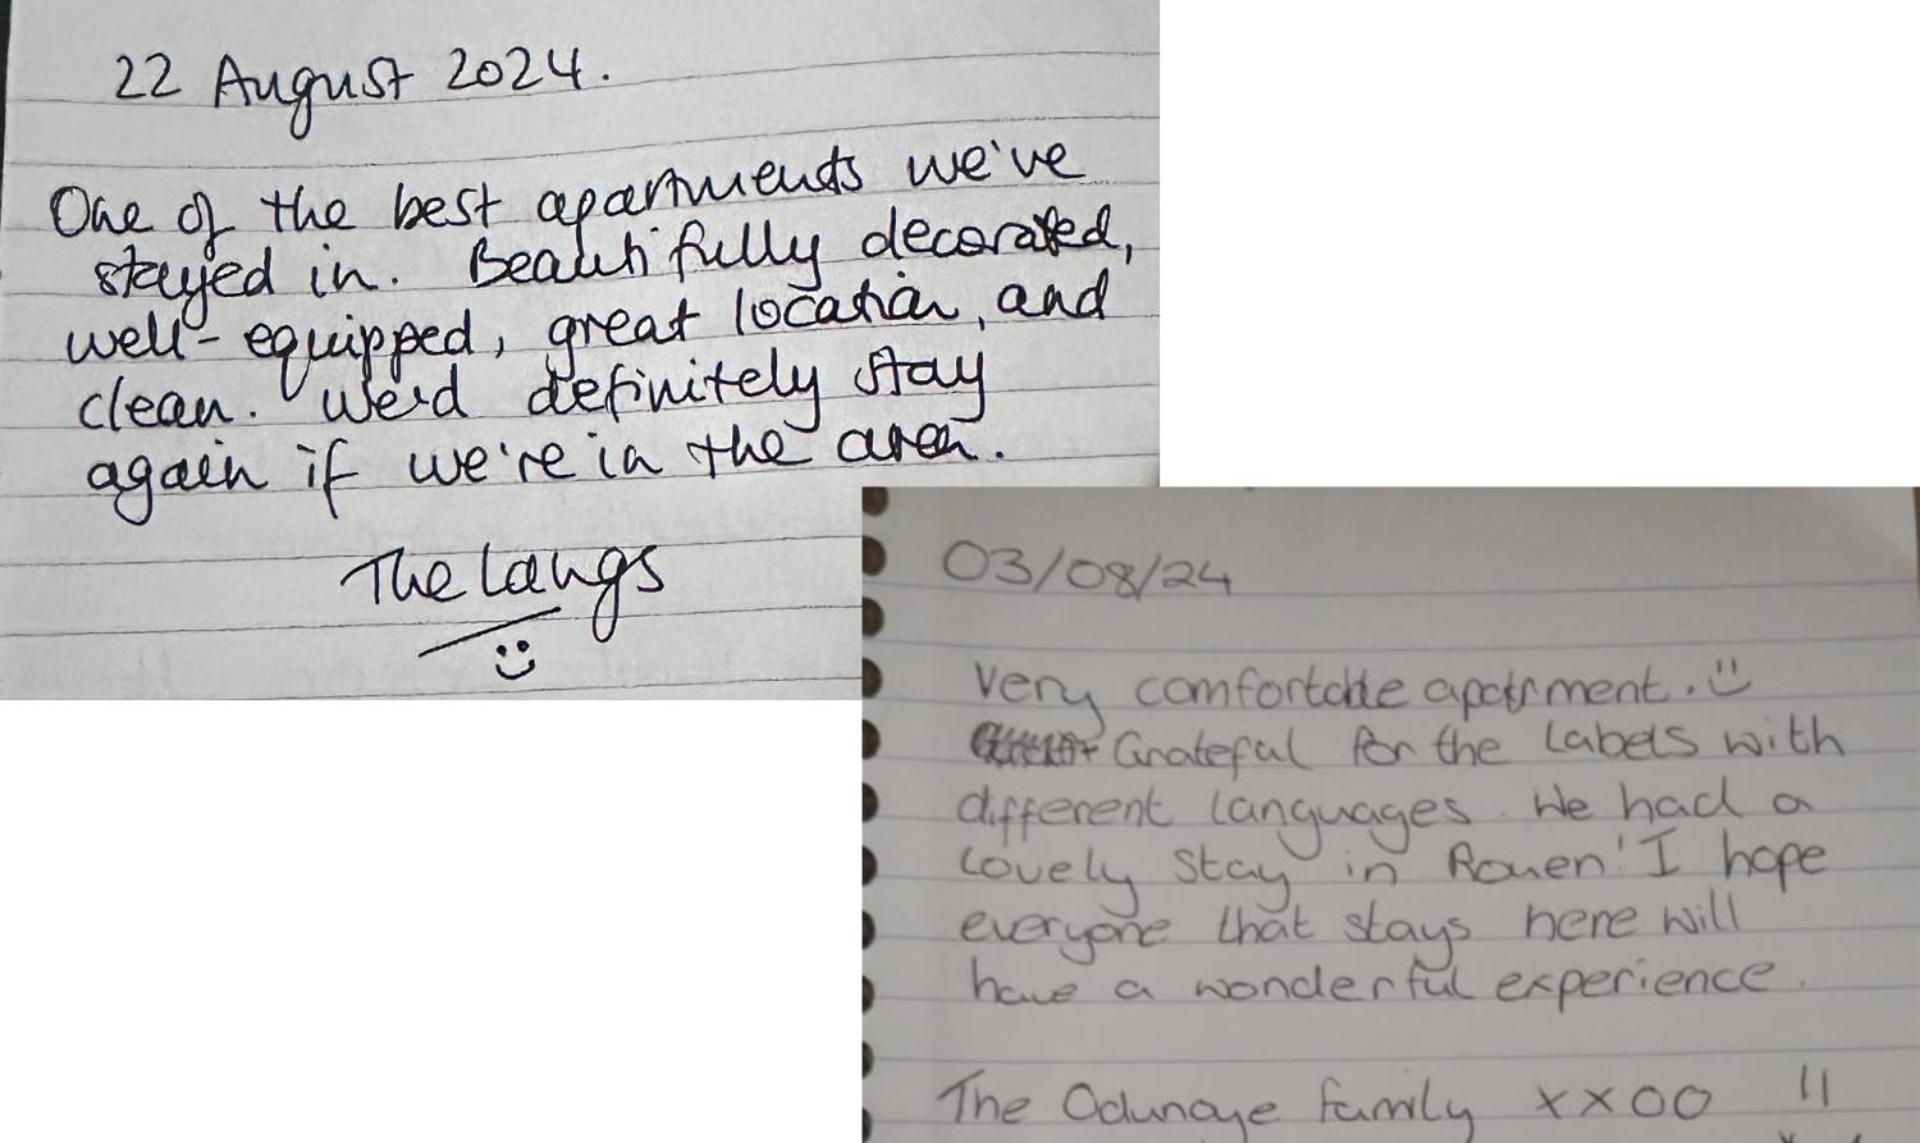 22 August 2024.
One of the best apartments we've
stayed in. Beautifully decorated,
well-equipped, great location, and
clean. We'd definitely stay
again if we're in the area.
The Langs
03/08/24
Very comfortable apartment. ü
Grateful for the labels with
different languages. We had a
lovely stay in Rouen! I hope
everyone that stays here will
have a wonderful experience.
The Odunaye family xxoo